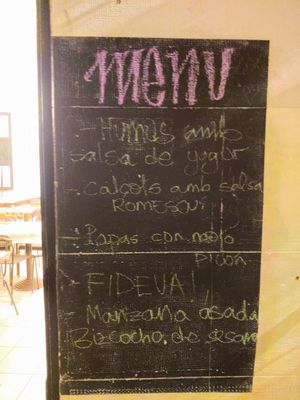 menu
- Humus amb
salsa de yogur
- Calçots amb salsa
ROMESCU
- Papas con mojo
PICON
- FIDEVA!
- Manzana asada
Bizcocho de